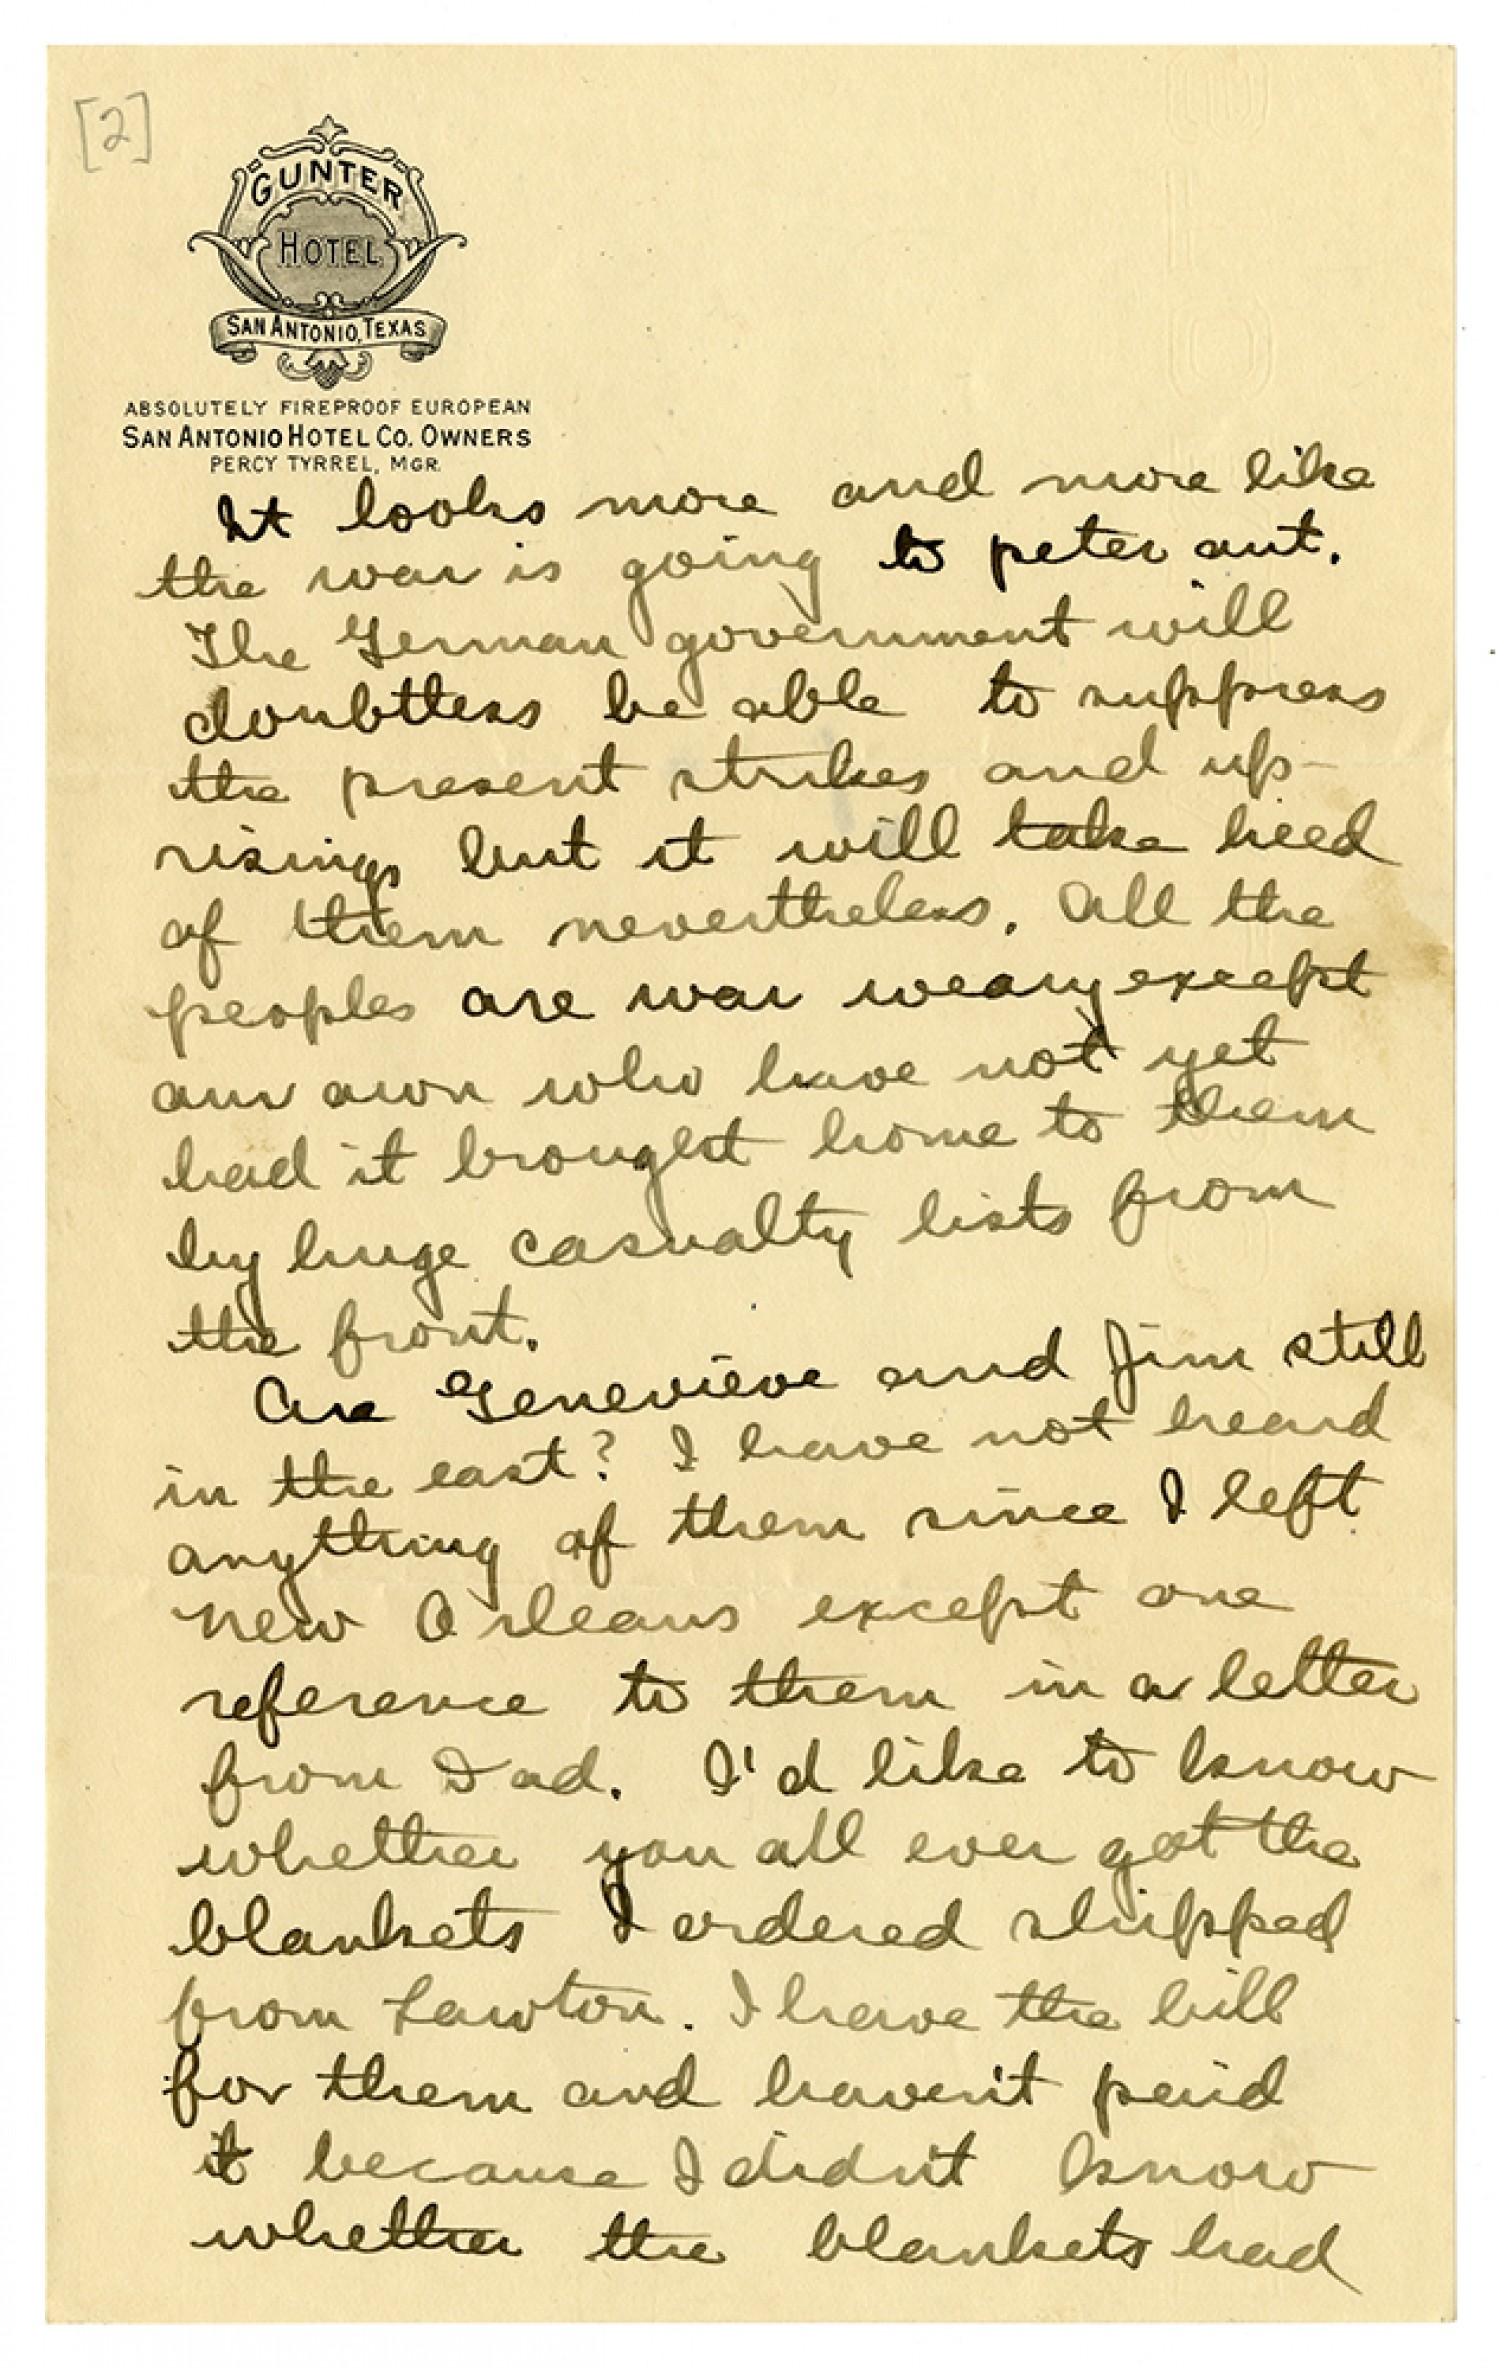 [2]
GUNTER
HOTEL
SAN ANTONIO, TEXAS
ABSOLUTELY FIREPROOF EUROPEAN
SAN ANTONIO HOTEL CO. OWNERS
PERCY TYRREL, MGR.
It looks more and more like
the war is going to peter out.
The German government will
doubtless be able to suppress
the present strikes and up-
risings but it will take heed
of them nevertheless. All the
peoples are war weary except
our own who have not yet
had it brought home to them
by huge casualty lists from
the front.
Are Genevieve and Jim still
in the east? I have not heard
anything of them since I left
New Orleans except one
reference to them in a letter
from Dad. I'd like to know
whether you all ever got the
blankets I ordered shipped
from Lawton. I have the bill
for them and haven't paid
it because I didn't know
whether the blankets had